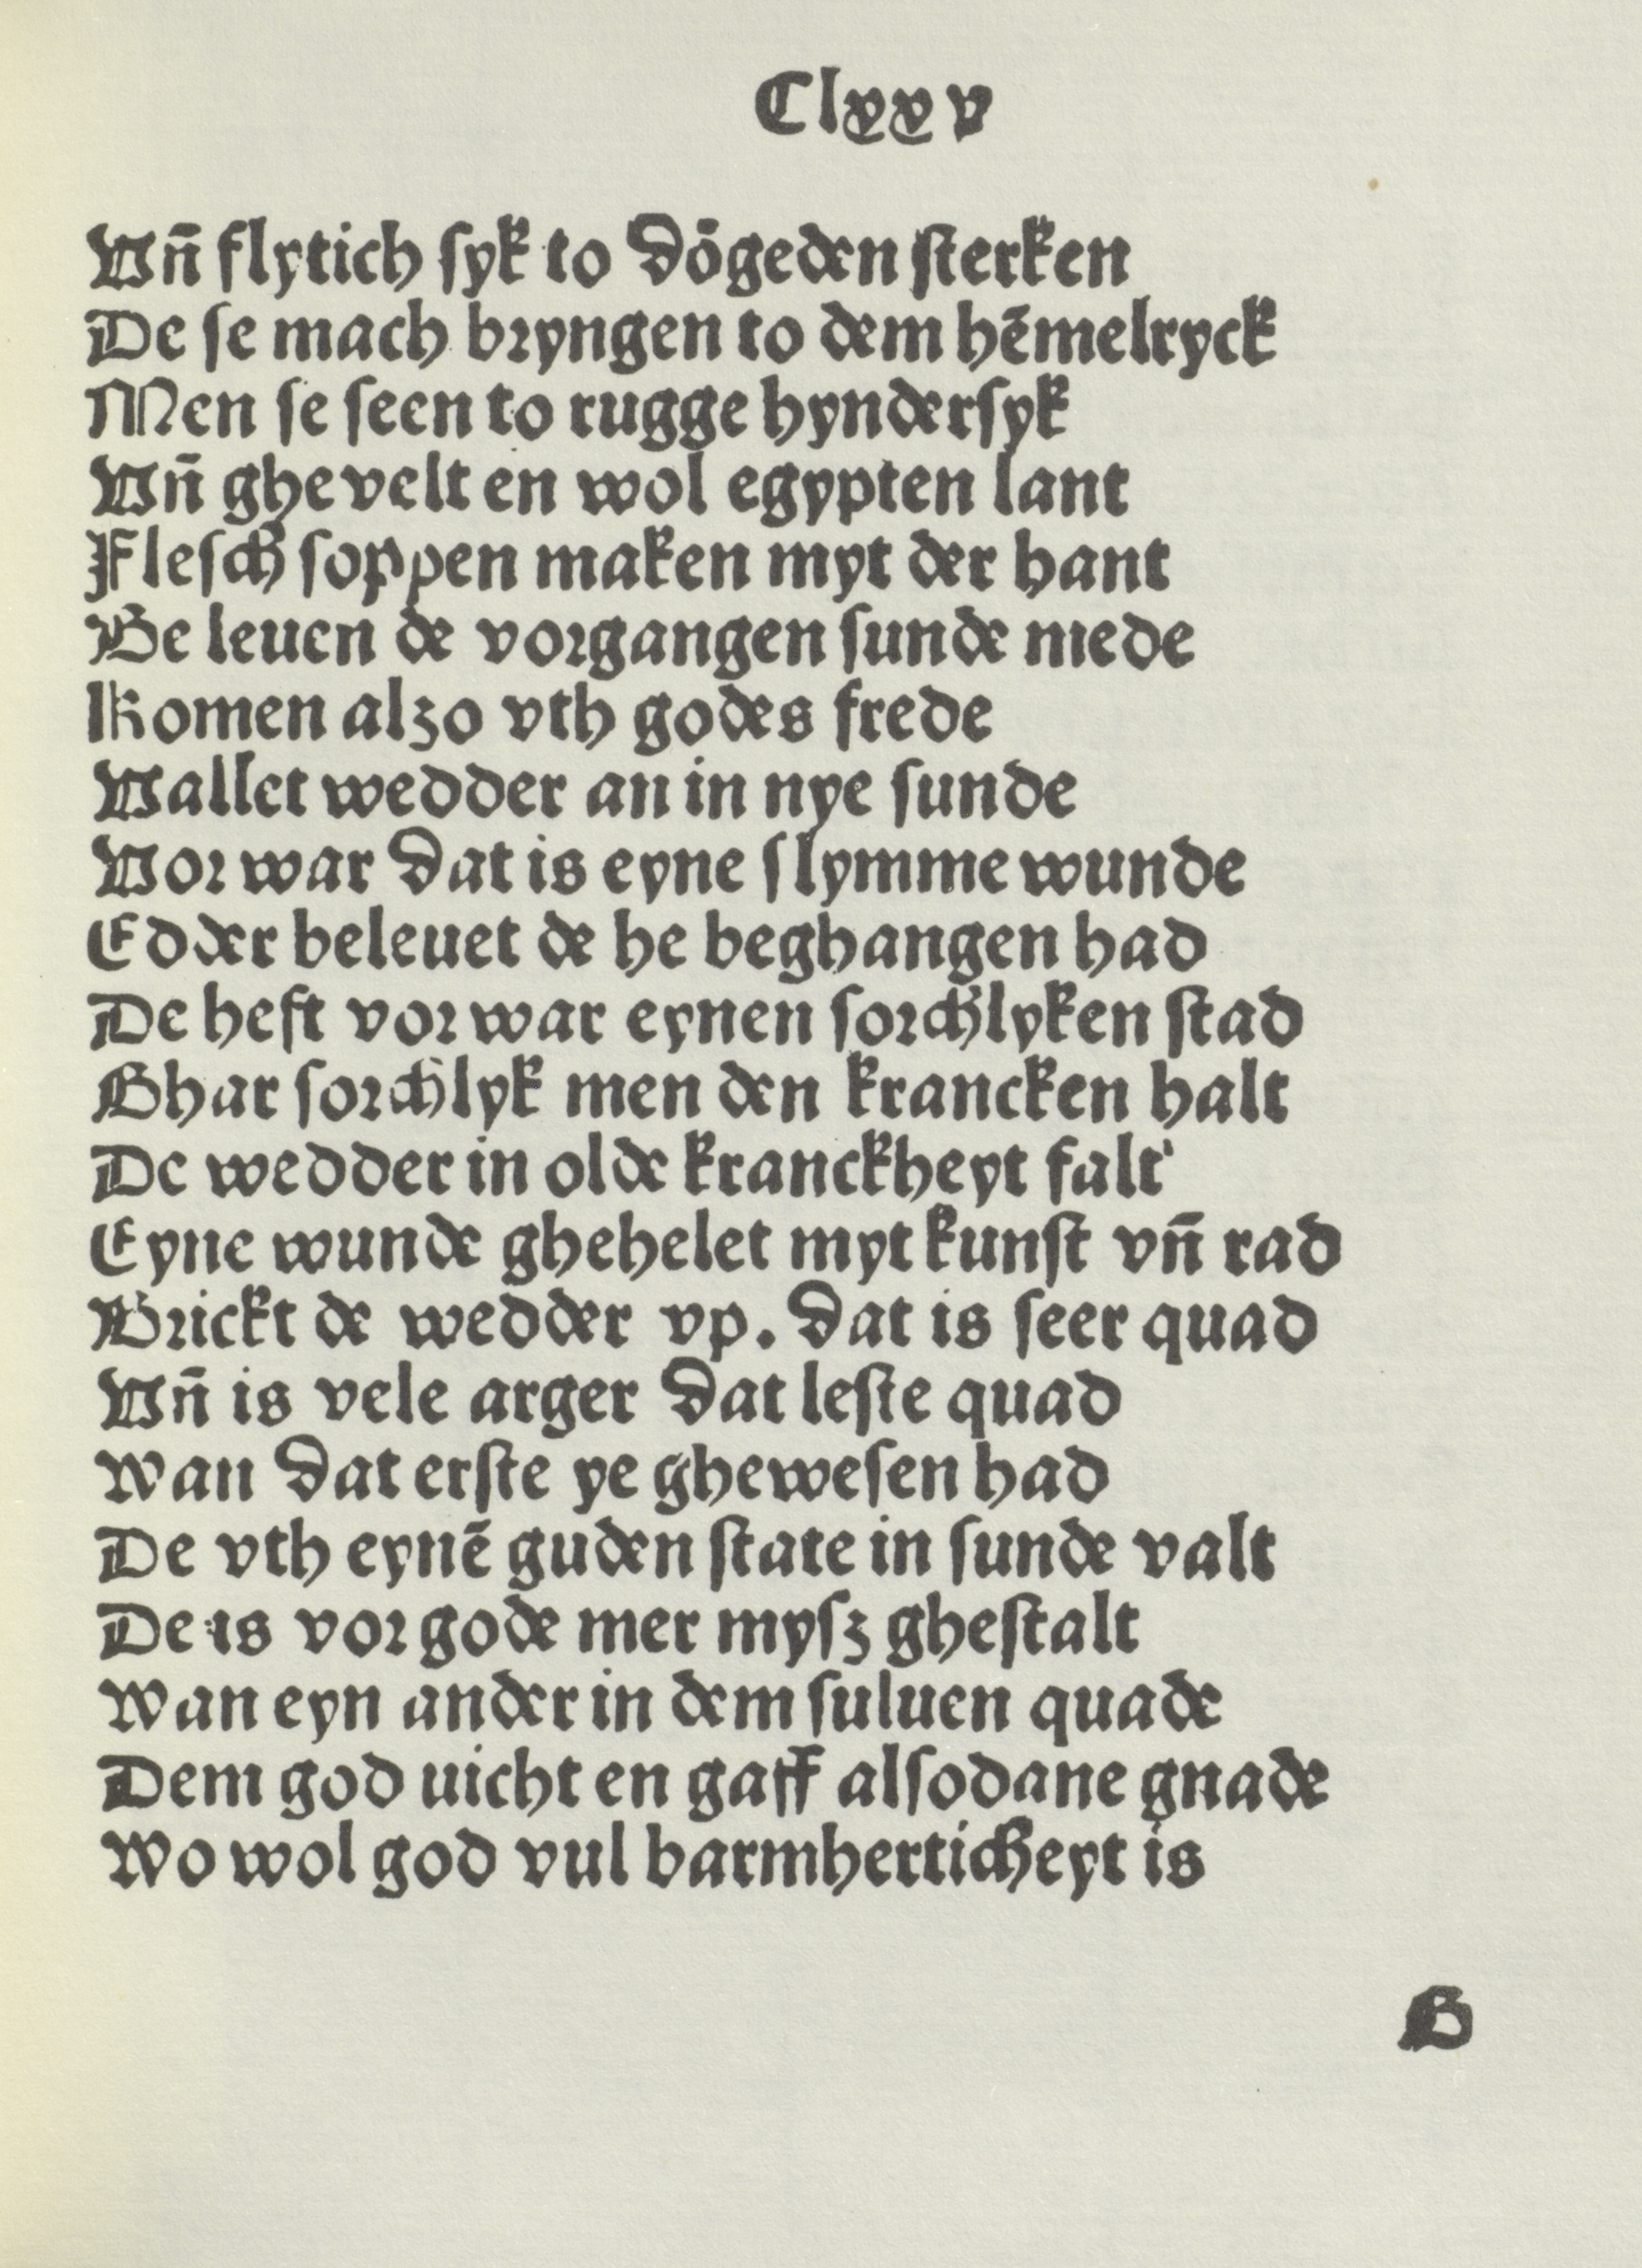 Clxxv
Vn̄ flytich ſyk to dȫgeden ſterken
De ſe mach bryngen to dem hēmelryck
Men ſe ſeen to rugge hynderſyk
Vn̄ ghevelt en wol egypten lant
Fleſch ſoppen maken myt der hant
Be leuen de vorgangen ſunde mede
Komen alzo vth godes frede
Vallet wedder an in nye ſunde
Vor war dat is eyne ſlymme wunde
Edder beleuet de he beghangen had
De heft vor war eynen ſorchlyken ſtad
Ghar ſorchlyk men den krancken halt
De wedder in olde kranckheyt falt
Eyne wunde ghehelet myt kunſt vn̄ rad
Brickt de wedder vp. dat is ſeer quad
Vn̄ is vele arger dat leſte quad
Wan dat erſte ye gheweſen had
De vth eynē guden ſtate in ſunde valt
De is vor gode mer myſz gheſtalt
Wan eyn ander in dem ſuluen quade
Dem god uicht en gaff alſodane gnade
Wo wol god vul barmherticheyt is
B